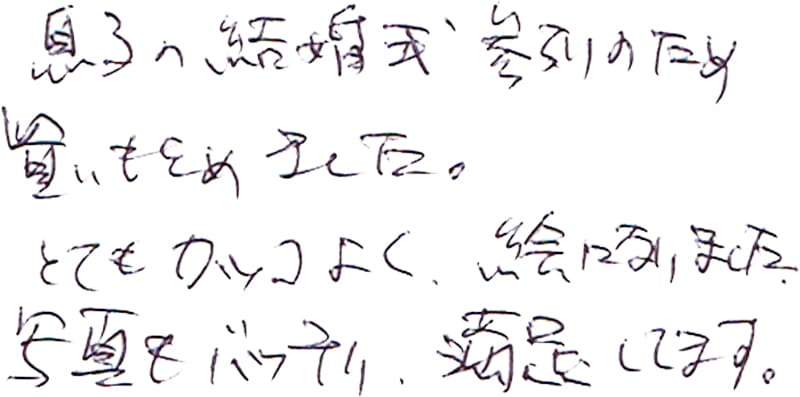 息子の結婚式 参列のため
買いもとめました。
とてもカッコよく、絵になりました。
写真もバッチリ、満足してます。